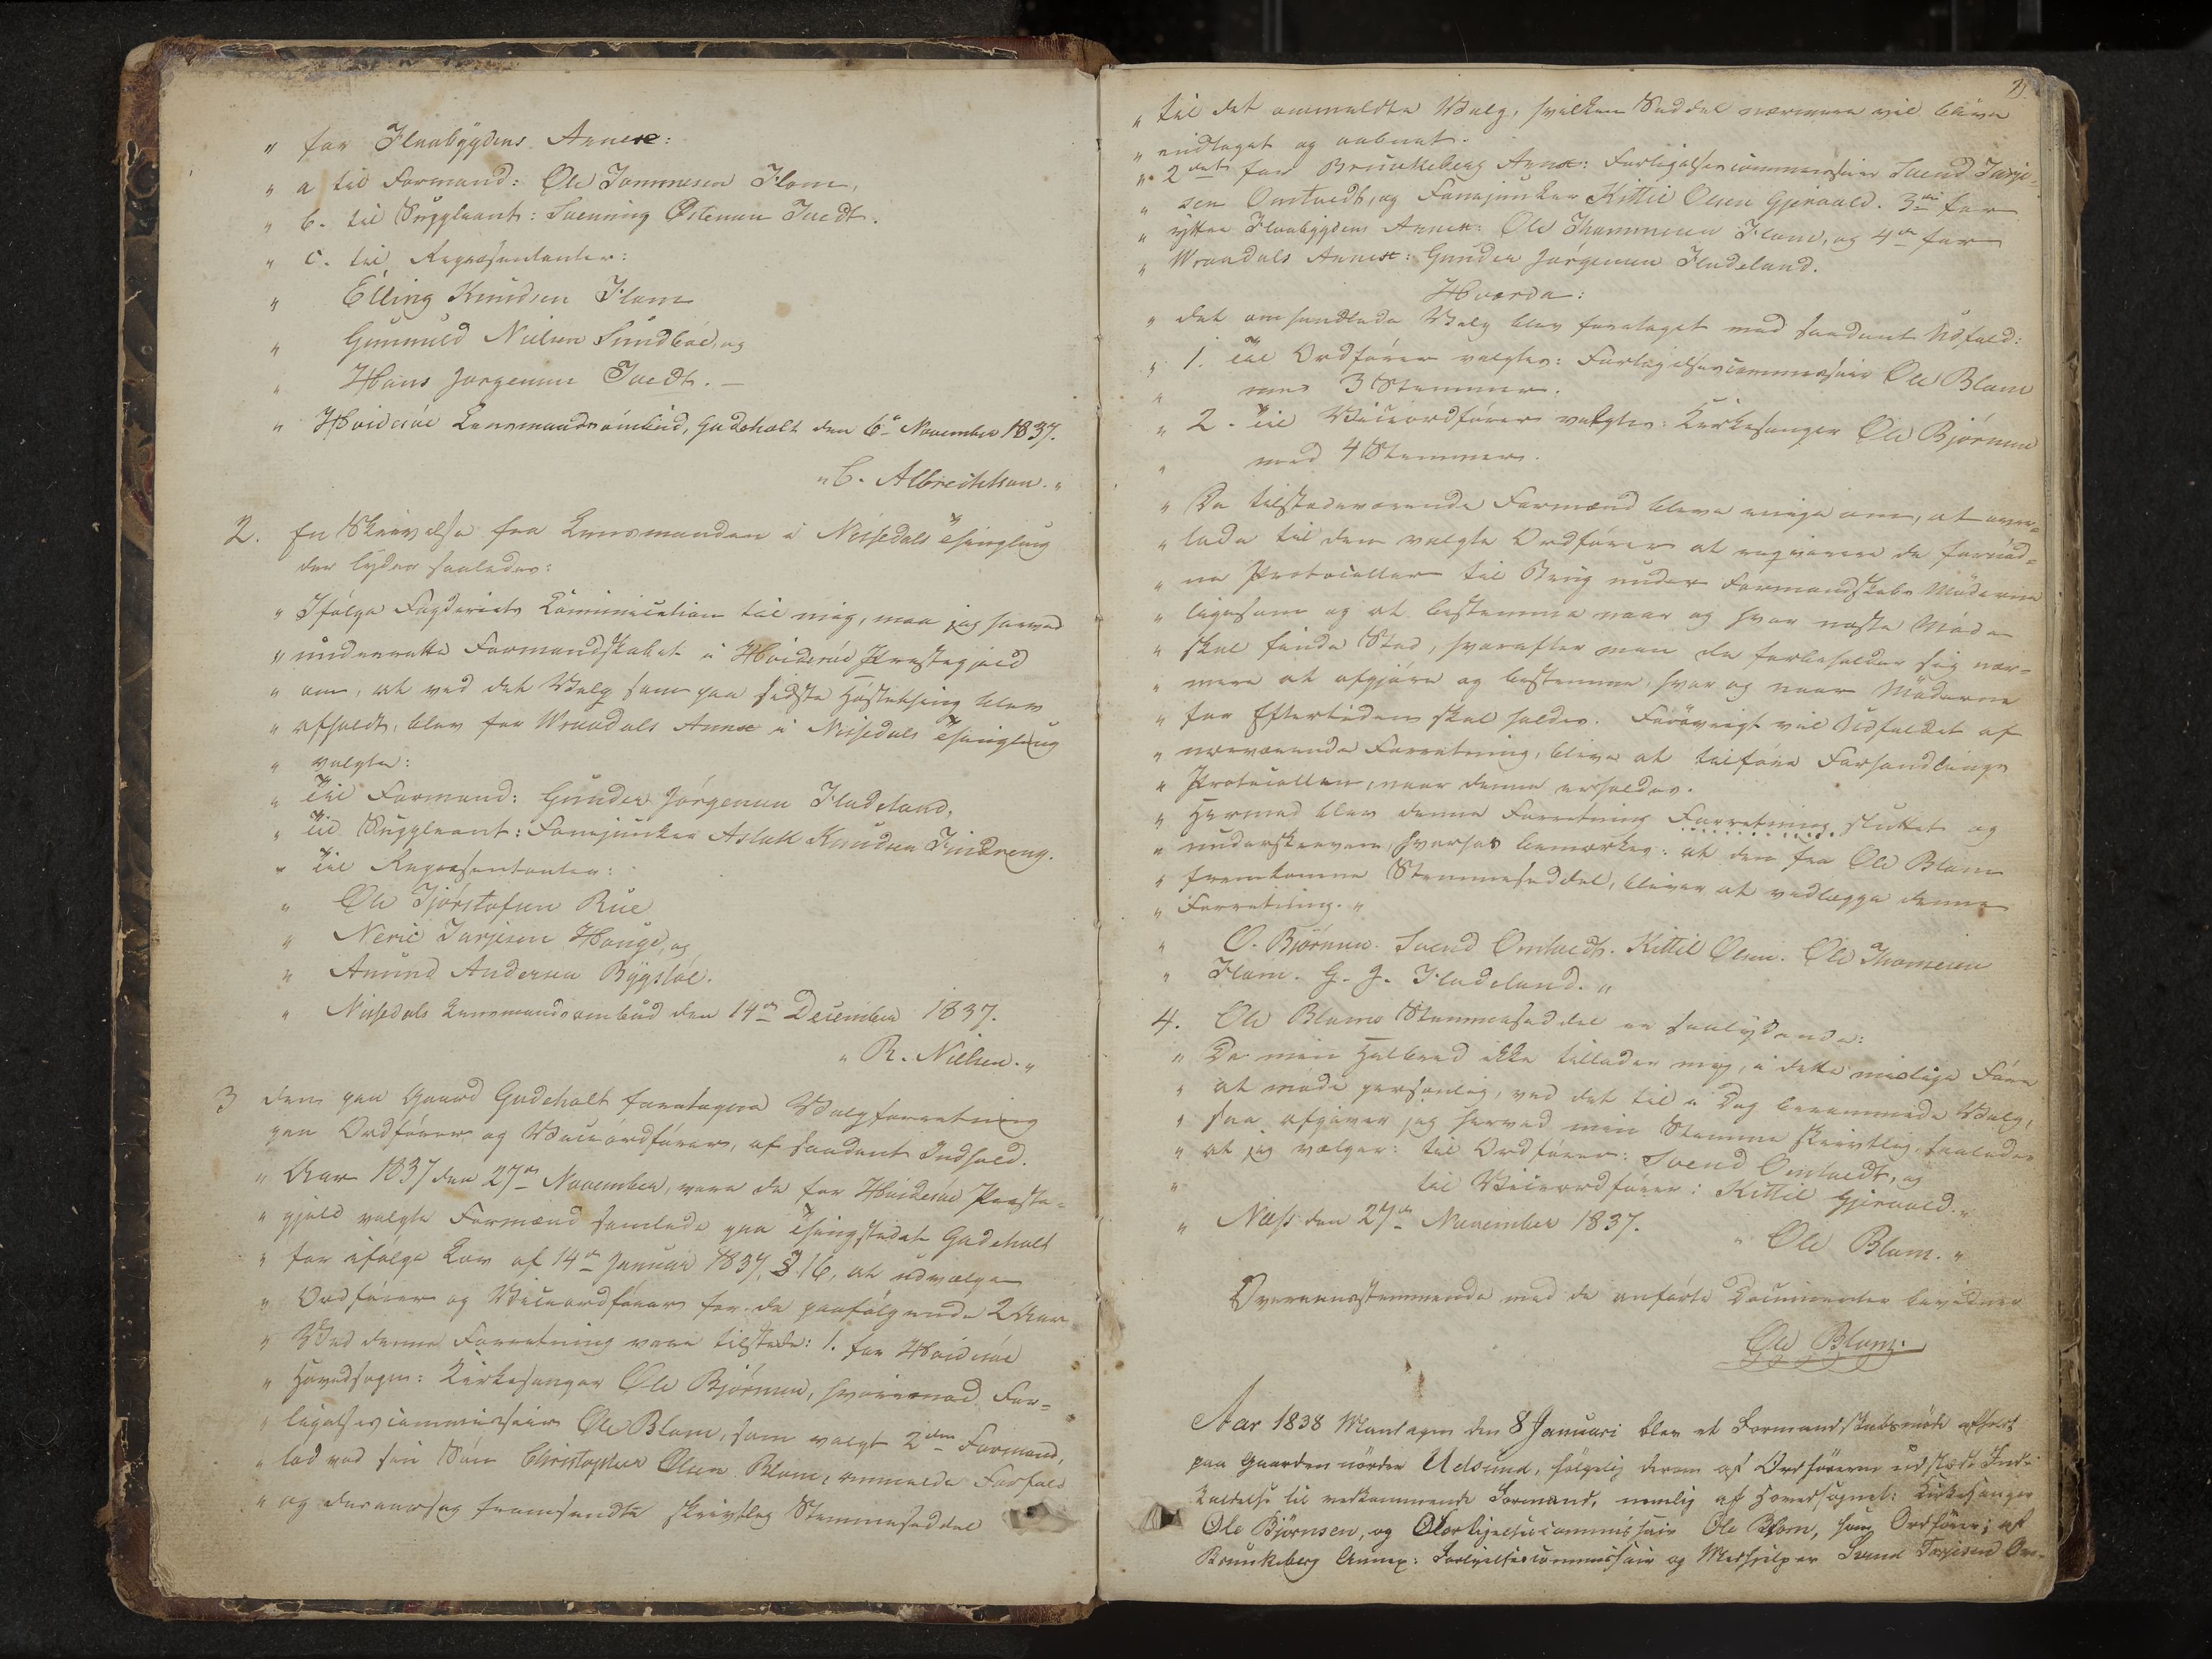 " for Flaabygdens Annex:
" a til Formand: Ole Tommesen Flom,
" b. til Suppleant: Svenning Østensen Tvedt.
" c. til Repræsentanter:
" Elling Knudsen Flom
" Gunnuld Nielsen Sundbøe, og
" Hans Jørgensen Tvedt. —
" Hvidesøe Lensmandsombud, Gudeholt den 6te November 1837.
" C. Albrechtson. "
2. En Skrivelse fra Lensmanden i Nissedals Thinglaug
der lyder saaledes:
" Ifølge Fogderiets Communication til mig, maa jeg herved
" underrette Formandskabet i Hvidesøe Præstegjeld
" om, at ved det Valg som paa sidste Høstething blev
" afholdt, blev for Wraadals Annex i Nissedals Thinglaug
" valgte:
" Til Formand: Gunder Jørgensen Fladeland,
" Til Suppleant: Fanejunker Aslak Knudsen Tindreng.
" Til Repræsentanter:
" Ole Tjøstofsen Rue
" Neric Tarjesen Hauge, og
" Amund Andersen Bygstøl.
" Nissedals Lensmandsombud den 14de December 1837.
" R. Nielsen. "
3 den paa Gaard Gudeholt foretagne Valgforretning
paa Ordfører og Viceordfører, af saadant Indhold.
" Aar 1837 den 27de November, vare de for Hvidesøe Præste-
" gjeld valgte Formænd samlede paa Thingstedet Gudeholt
" for ifølge Lov af 14de Januar 1837, § 16, at udvælge
" Ordfører og Viceordfører for de paafølgende 2 Aar
" Ved denne Forretning vare tilstede: 1. for Hvidesøe
" Hovedsogn: Kirkesanger Ole Bjørnsen, hvorimod For-
" ligelsescommissair Ole Blom, som valgt 2den Formand,
" lod ved sin Søn Christopher Olsen Blom, anmelde Forfald
" og derhos fremsendte skrivtlig Stemmeseddel
" til det anmeldte Valg, hvilken Seddel nærmere vil blive
" indtaget og aabnet.
" 2det for Brunkeberg Annex: Forligelsescommissair Svend Tarje-
" sen Omtvedt, og Fanejunker Kittil Olsen Gjeraald. 3die for
" yttre Flaabygdens Annex: Ole Thommesen Flom, og 4de for
" Wraadals Annex: Gunder Jørgensen Fladeland.
Hvorda:
" det omhandlede Valg blev foretaget med saadant Udfald:
" 1. Til Ordfører valgtes: Forligelsescommissair Ole Blom
" med 3 Stemmer.
" 2. Til Viceordfører valgtes: Kirkesanger Ole Bjørnsen
" med 4 Stemmer.
" De tilstedeværende Formænd bleve enige om, at over-
" lade til den valgte Ordfører at reqvirere de fornød-
" ne Protocoller til Brug under Formandskabs Møderne
" ligesom og at bestemme naar og hvor næste Møde
" skal finde Sted, hvorefter man da forbeholder sig nær-
" mere at afgjøre og bestemme, hvor og naar Møderne
" for Eftertiden skal holdes. Forøvrigt vil Udfaldet af
" nærværende Forretning, blive at tilføre Forhandlings
" Protocollen, naar denne erholdes.
" Hermed blev denne Forretning Forretning sluttet og
" underskreven, hvorhos bemærkes: at den fra Ole Blom
" fremkomne Stemmeseddel, bliver at vedlægge denne
" Forretning. "
" O. Bjørnsen. Svend Omtvedt. Kittil Olsen. Ole Thomesen
" Flom. G. J. Fladeland. "
4. Ole Bloms Stemmeseddel er saalydende:
" Da min Helbred ikke tillader mig, i dette mislige Føre
" at møde personlig, ved det til i Dag berammede Valg,
" saa afgiver jeg herved min Stemme skrivtlig, saaledes
" at jeg vælger: til Ordfører: Svend Omtvedt, og
" til Viceordfører: Kittil Gjeraald. "
" Næss den 27de November 1837.
" Ole Blom. "
Overeensstemmende med de anførte Documenter bevidner
Ole Blom.
Aar 1838 Mandagen den 8 Januari blev et Formandskabsmøde afholdt
paa Gaarden nørdre Udsund, følgelig derom af Ordføreren udstædt Ind-
kaldelse til vedkommende Formænd, nemlig af Hovedsognet: Kirkesanger
Ole Bjørnsen, og Forligelsescommissair Ole Blom, som Ordfører; af
Brunkeberg Annex: Forligelsescommissair og Medhjelper Svend Tarjesen Om-